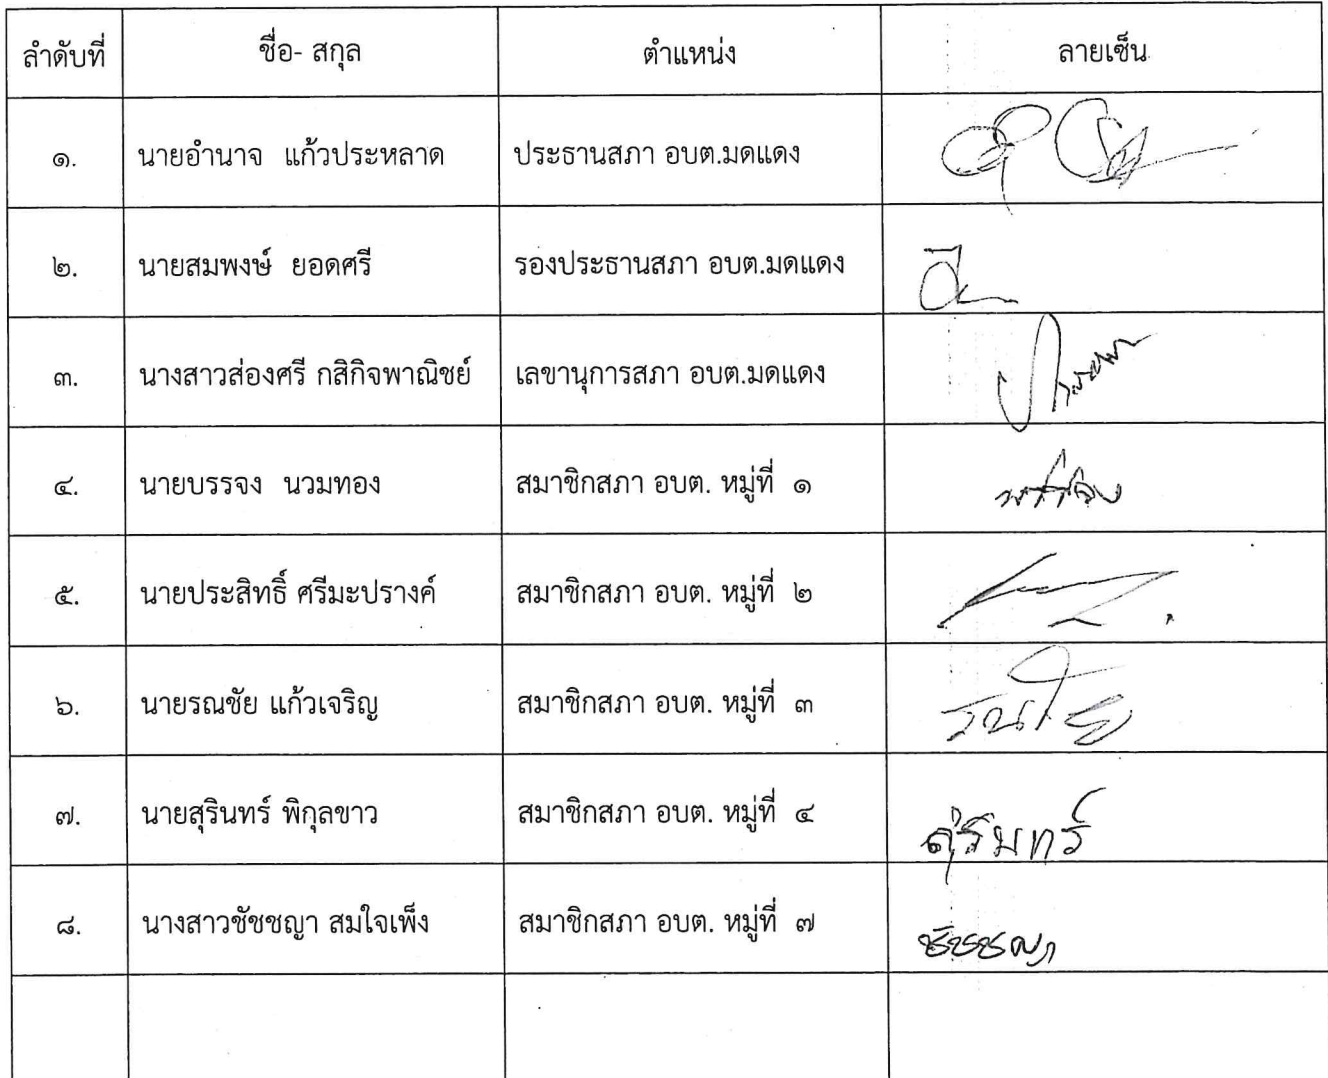 ลำดับที่ ชื่อ- สกุล ตำแหน่ง ลายเซ็น
๑. นายอำนาจ แก้วประหลาด ประธานสภา อบต.มดแดง
๒. นายสมพงษ์ ยอดศรี รองประธานสภา อบต.มดแดง
๓. นางสาวส่องศรี กสิกิจพาณิชย์ เลขานุการสภา อบต.มดแดง
๔. นายบรรจง นวมทอง สมาชิกสภา อบต. หมู่ที่ ๑
๕. นายประสิทธิ์ ศรีมะปรางค์ สมาชิกสภา อบต. หมู่ที่ ๒
๖. นายรณชัย แก้วเจริญ สมาชิกสภา อบต. หมู่ที่ ๓ รณชัย
๗. นายสุรินทร์ พิกุลขาว สมาชิกสภา อบต. หมู่ที่ ๔ สุรินทร์
๘. นางสาวชัชชญา สมใจเพ็ง สมาชิกสภา อบต. หมู่ที่ ๗ ชัชชญา